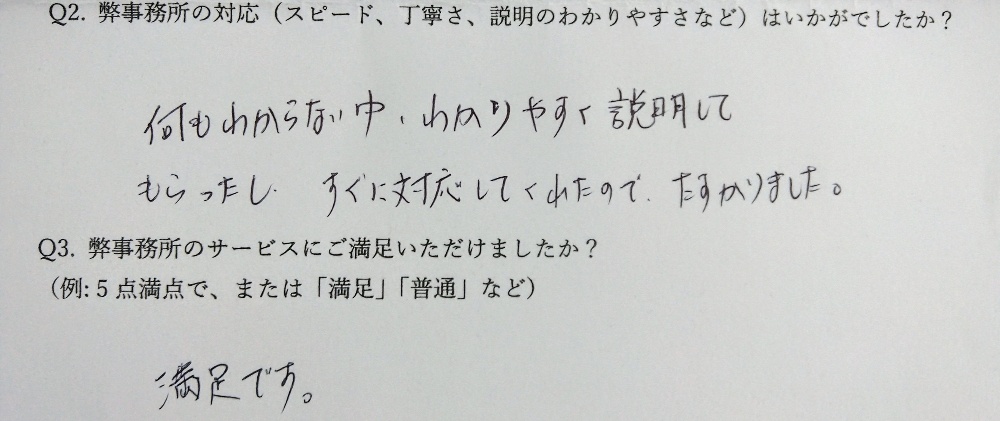 Q2. 弊事務所の対応（スピード、丁寧さ、説明のわかりやすさなど）はいかがでしたか？
何もわからない中、わかりやすく説明して
もらったし、すぐに対応してくれたので、たすかりました。
Q3. 弊事務所のサービスにご満足いただけましたか？
（例: 5 点満点で、または「満足」「普通」など）
満足です。